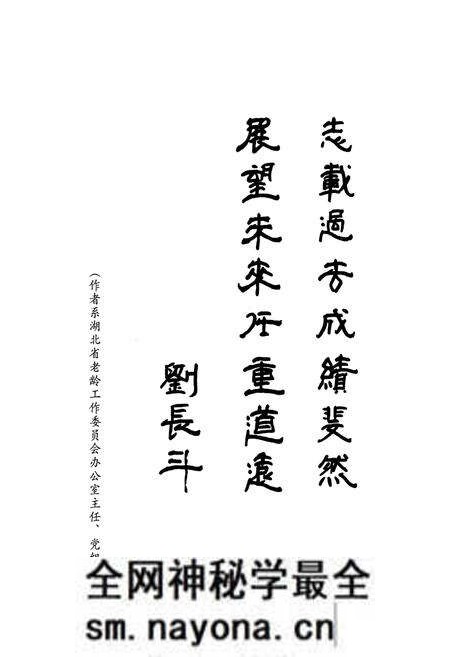 志載過去成績斐然
展望未來任重道遠
劉長斗
（作者系湖北省老龄工作委员会办公室主任、党
全网神秘学最全
sm.nayona.cn